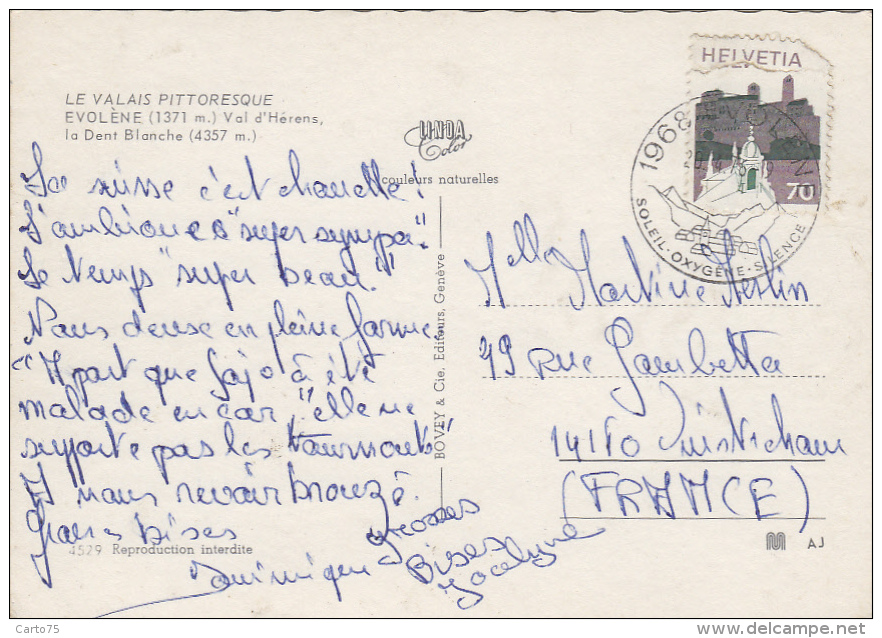 HELVETIA
70
1968 EVOLENE
SOLEIL · OXYGÈNE · SILENCE
LE VALAIS PITTORESQUE
EVOLÈNE (1371 m.) Val d'Hérens,
la Dent Blanche (4357 m.)
LINDA
Color
couleurs naturelles
BOVEY & Cie, Editeurs, Genève
La suisse c'est chouette !
L'ambiance "super sympa".
Le temps "super beau."
Nous deuse en pleine forme,
"A part que Jojo à été
malade en car," elle ne
supporte pas les tournants"
A nous revoir bronzé.
Grosses bises
Dominique
Grosses
Bises
Jocelyne
Melle Martine
49 Rue Gambetta
14150 Ouistreham
(FRANCE)
4529 Reproduction interdite
M AJ
Carto75
www.delcampe.net